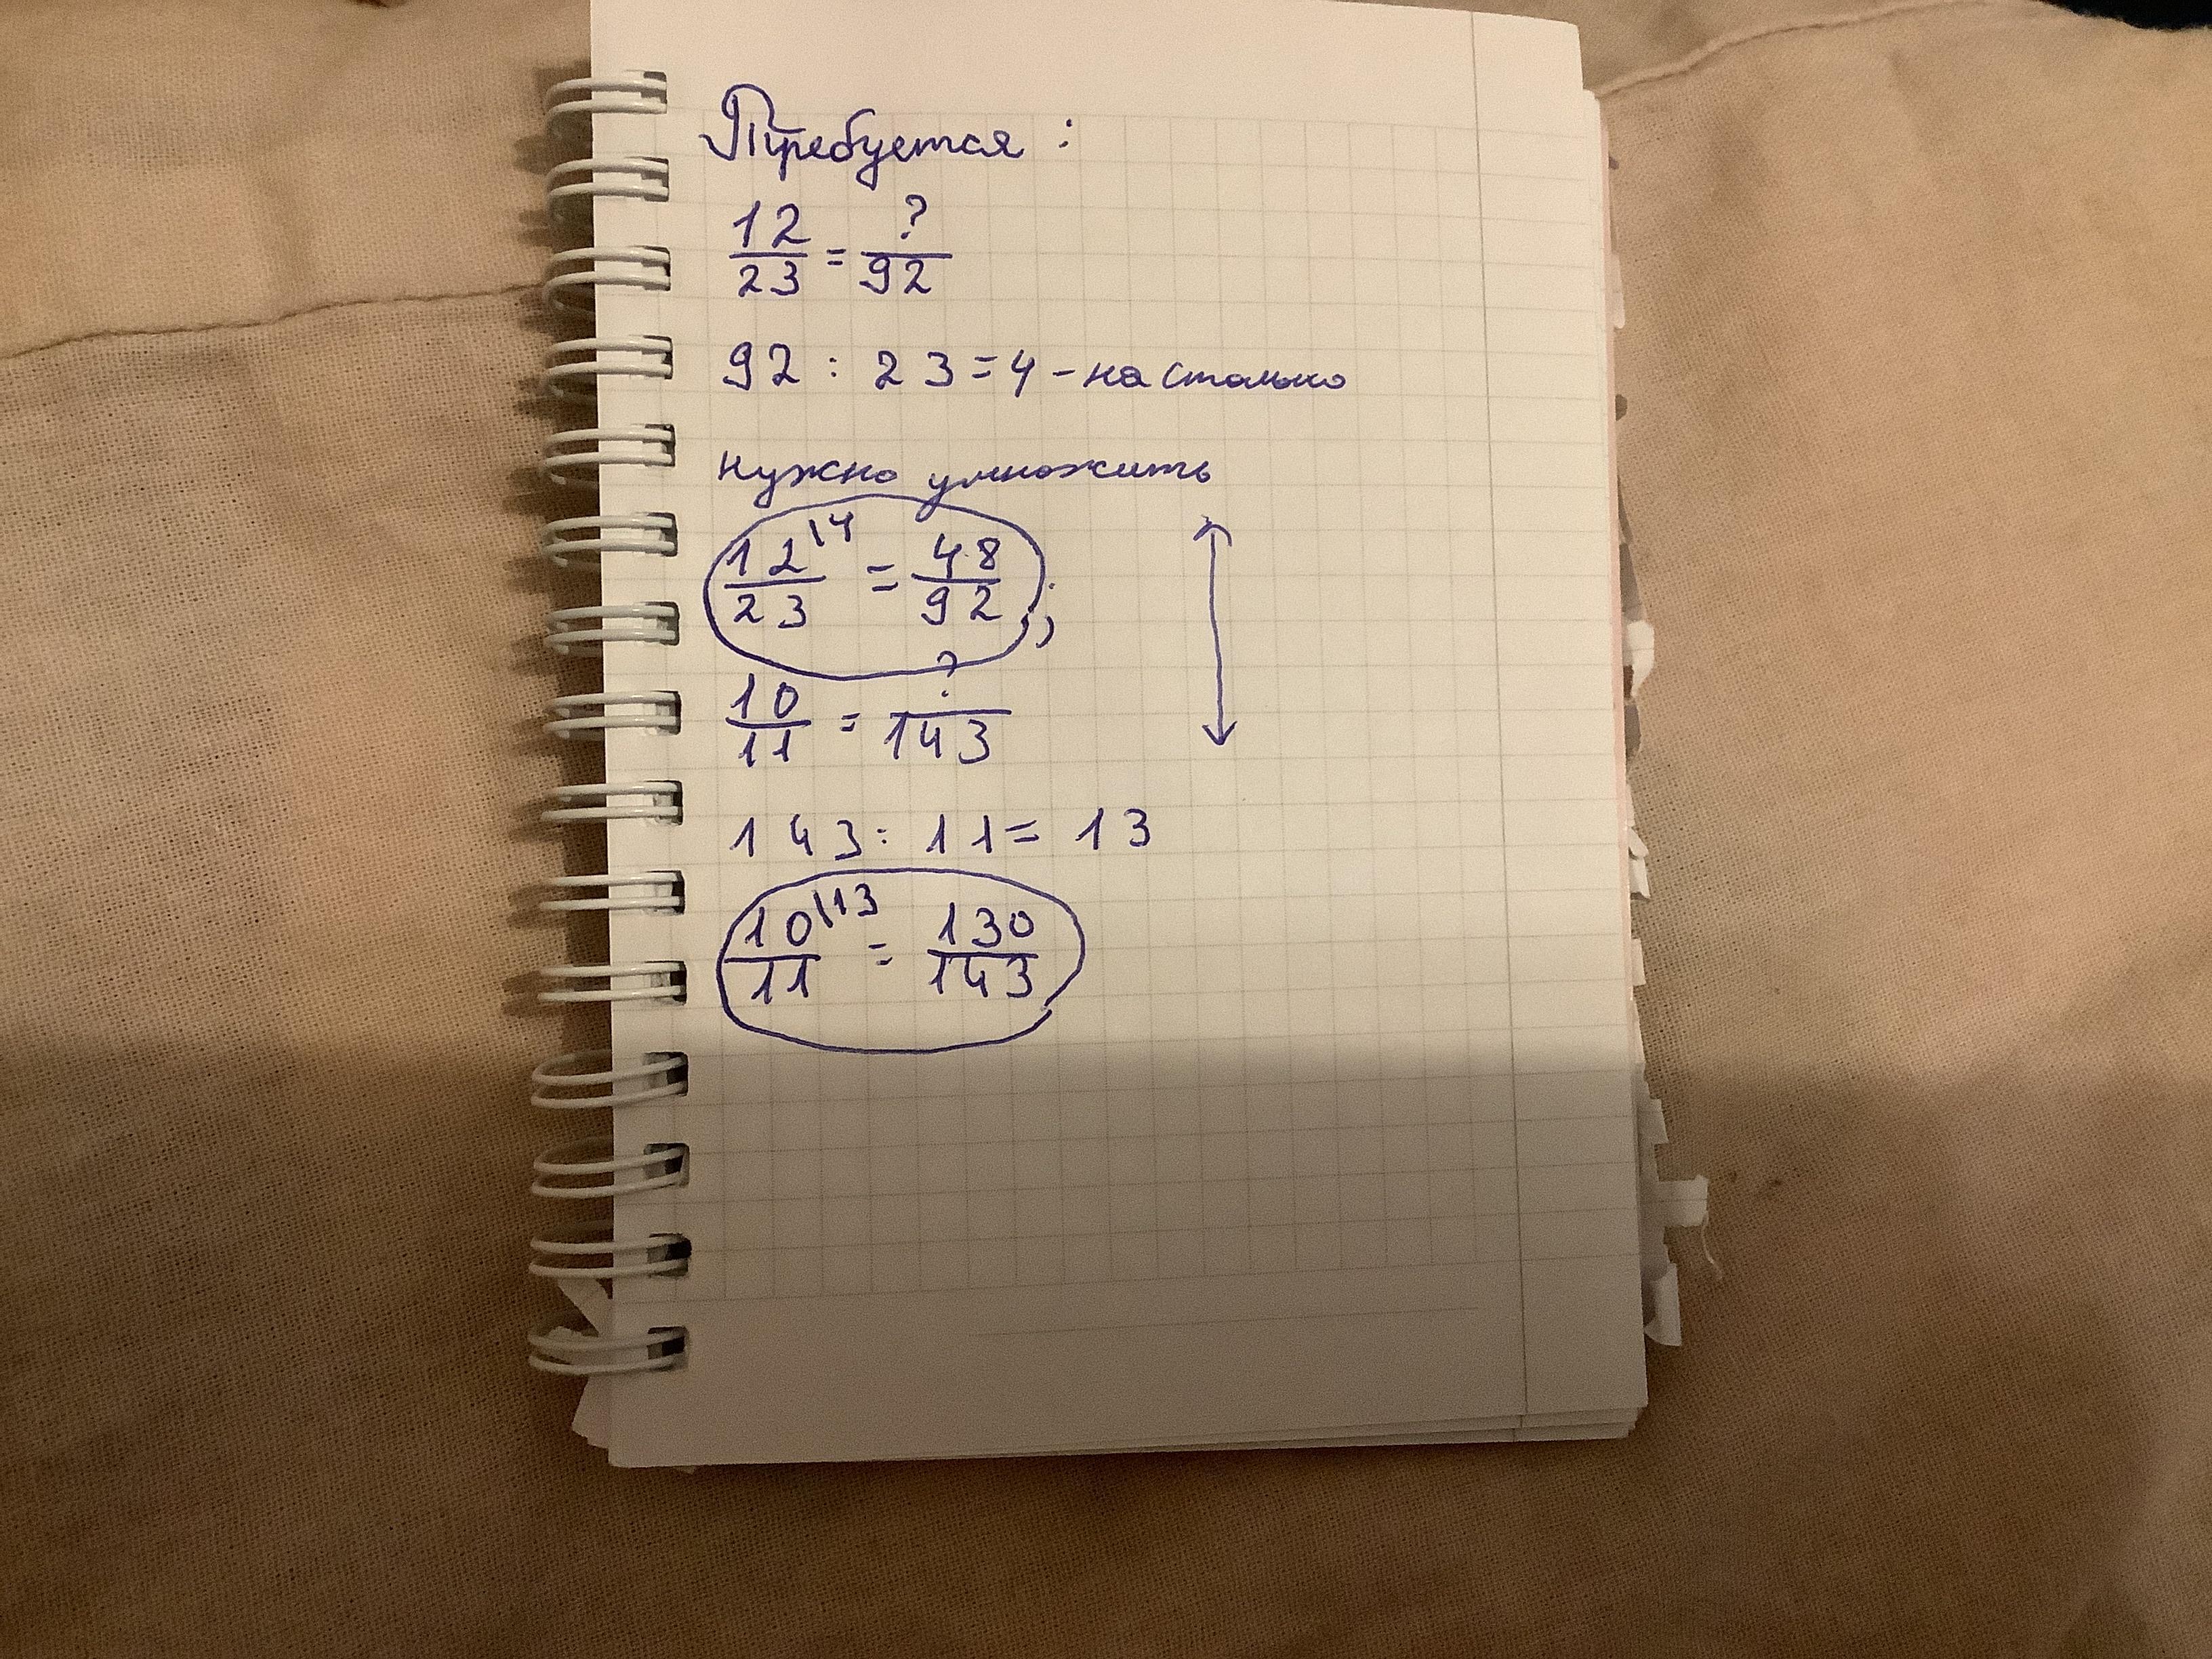 Требуется:
12/23 = ?/92
92 : 23 = 4 - на столько
нужно умножить
12\4/23 = 48/92;
10/11 = ?/143
143 : 11 = 13
10\13/11 = 130/143